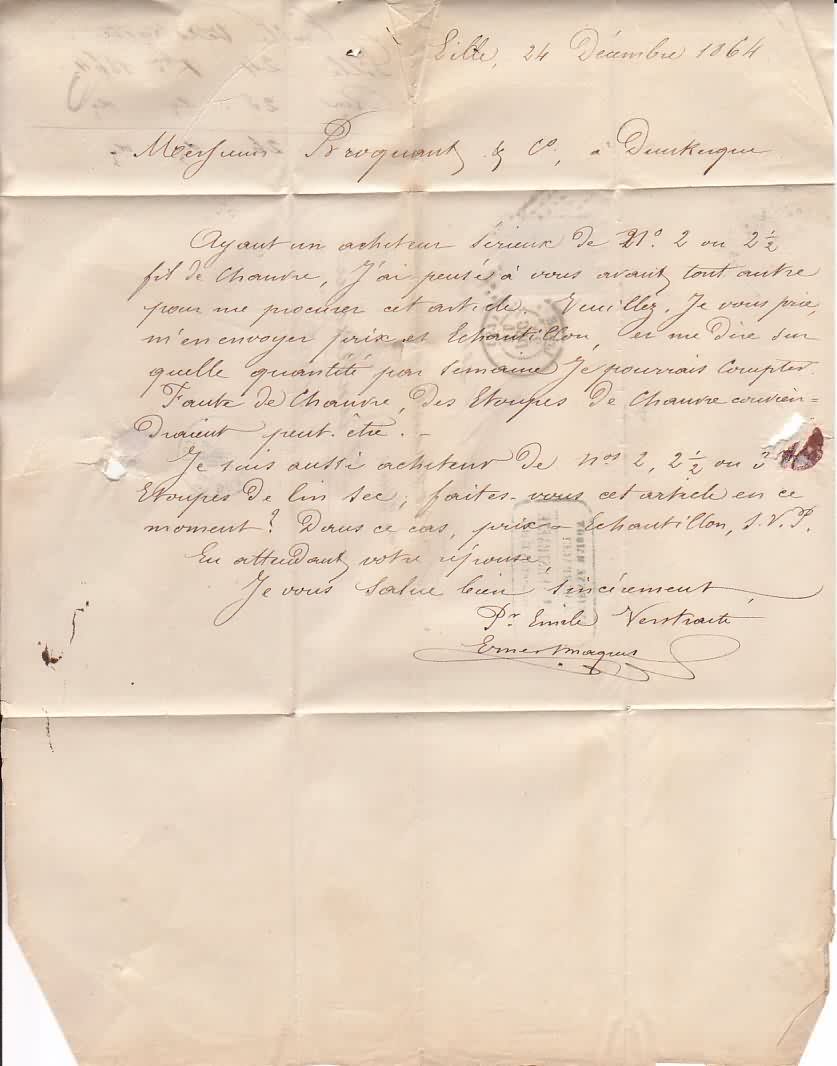 Lille, 24 Décembre 1864
Messieurs Broquant & Co, à Dunkerque
Ayant un acheteur sérieux de No. 2 ou 2 1/2
fil de Chanvre, J'ai pensé à vous avant tout autre
pour me procurer cet article. Veuillez, Je vous prie,
m'en envoyer prix et Echantillon, et me dire sur
quelle quantité par Semaine Je pourrais Compter.
Faute de Chanvre, des Etoupes de Chanvre convien=
draient peut-être. -
Je suis aussi acheteur de nos 2, 2 1/2 ou 3
Etoupes de lin sec; faites-vous cet article en ce
moment? Dans ce cas, prix & Echantillon, S.V.P.
En attendant votre réponse,
Je vous salue bien sincèrement,
Pr Emile Verstraete